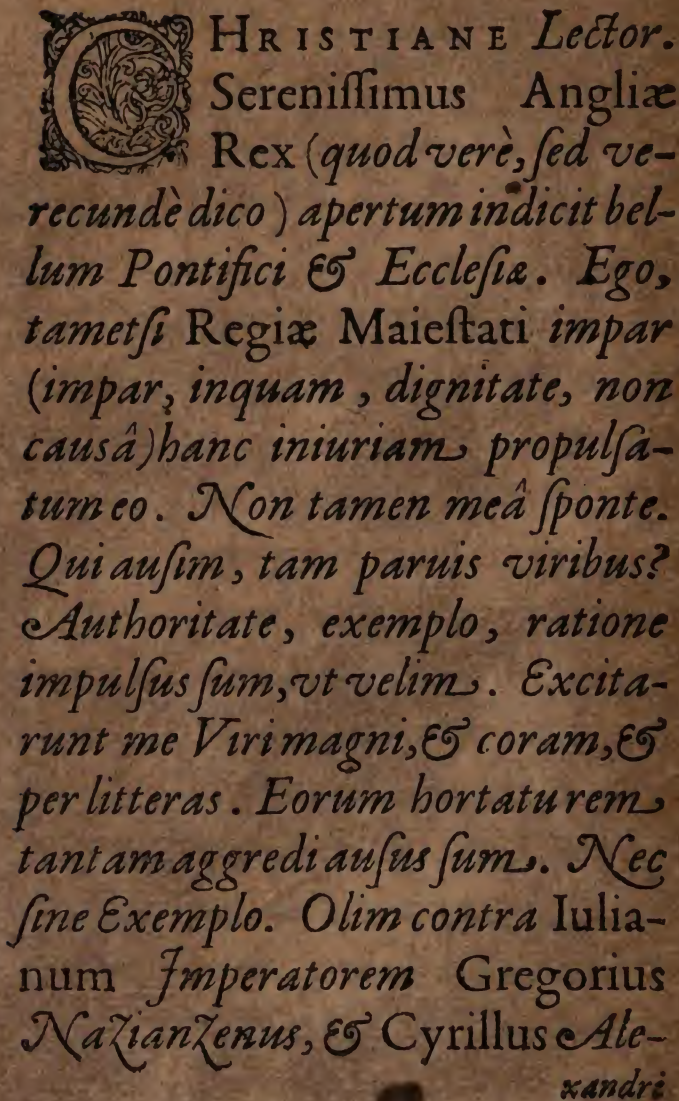 CHRISTIANE Lector.
Serenissimus Angliæ
Rex (quod verè, sed ve-
recundè dico) apertum indicit bel-
lum Pontifici & Ecclesiæ. Ego,
tametsi Regiæ Maiestati impar
(impar, inquam, dignitate, non
causâ) hanc iniuriam propulsa-
tum eo. Non tamen meâ sponte.
Qui ausim, tam paruis viribus?
Authoritate, exemplo, ratione
impulsus sum, vt velim. Excita-
runt me Viri magni, & coram, &
per litteras. Eorum hortatu rem
tantam aggredi ausus sum. Nec
sine Exemplo. Olim contra Iulia-
num Imperatorem Gregorius
Nazianzenus, & Cyrillus Ale-
xandri